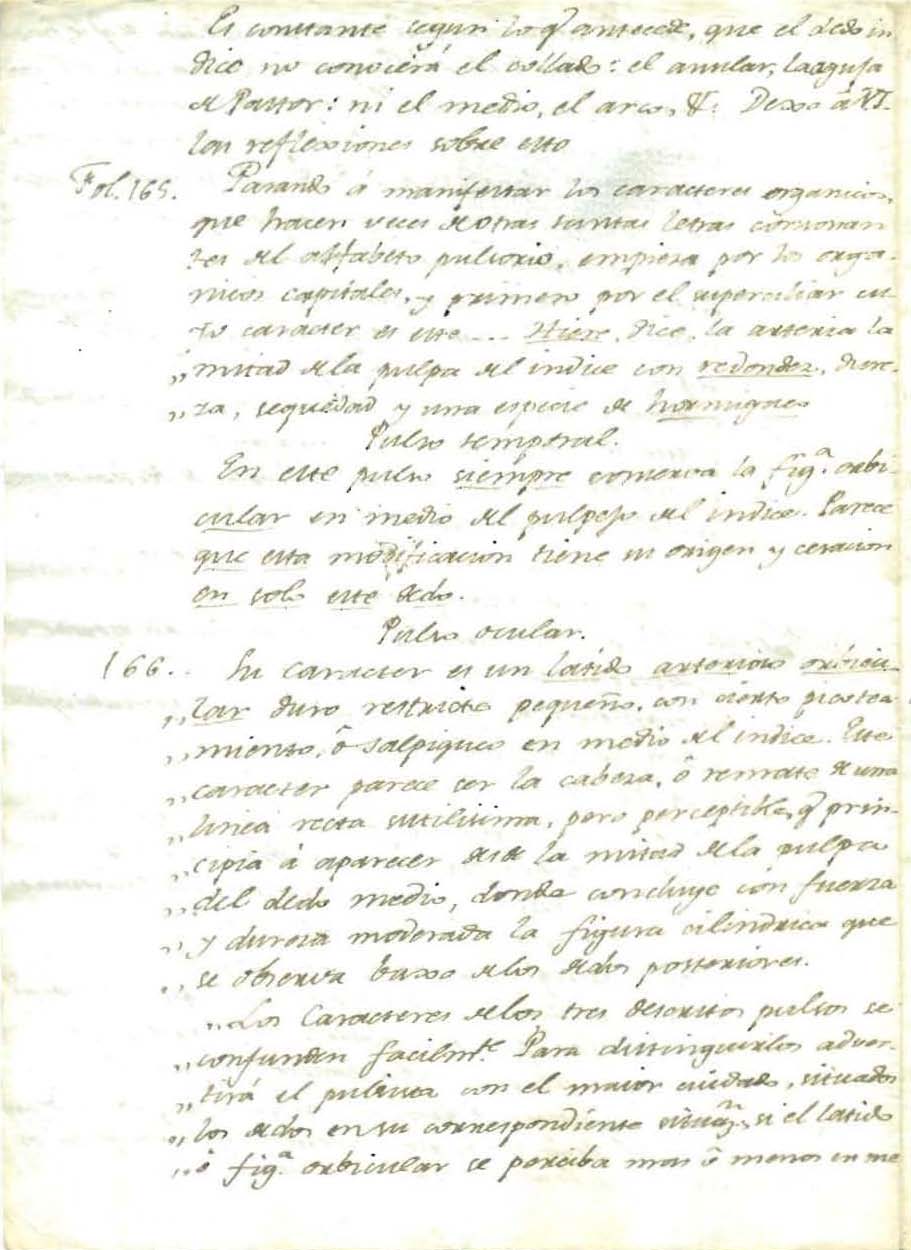 Es constante segun lo q̃ antecede, que el dedo in-
dice no conocerá el collado: el anular, la aguja
de Pastor: ni el medio, el arco, &: Dexo á VI.
las reflexiones sobre esto
Fol. 165. Pasando á manifestar los caracteres organicos,
que hacen veces de otras tantas letras consonan
tes del alfabeto pulsorio, empieza por los orga-
nicos capitales, y primero por el superciliar cu-
yo caracter es este ... Hiere, dice, la arteria la
,, mitad de la pulpa del indice con redondez, dure-
,, za, sequedad y una especie de hormigueo
Pulso temporal.
En este pulso siempre conserva la fig.ª orbi-
cular en medio del pulpejo del indice. Parece
que esta modificacion tiene su origen y cesacion
en solo este dedo.
Pulso ocular.
166.. Su caracter es un latido arterioso orbicu-
,, lar duro restricto pequeño, con cierto picotea
,, miento, ô salpiqueo en medio del indice. Este
,, caracter parece ser la cabeza, ô remate de una
,, linea recta sutilisima, pero perceptible, q̃ prin-
,, cipia á aparecer desde la mitad de la pulpa
,, del dedo medio, donde concluye con fuerza
,, y dureza moderada la figura cilindrica que
,, se observa baxo de los dedos posteriores.
,, Los Caracteres de los tres descritos pulsos se
,, confunden facilm.te Para distinguirlos adver-
,, tirá el pulsista con el maior cuidado, situados
,, los dedos en su correspondiente situaⁿ, si el latido
,, ô fig.ª orbicular se perciba mas ô menos en me